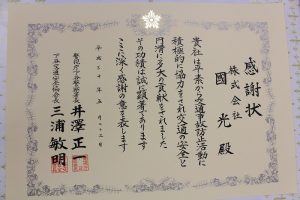 感謝状
株式会社
國光 殿
貴社は平素から交通事故防止活動に
積極的に協力をされ交通の安全と
円滑に多大の貢献をされました
その功績は誠に顕著であります
ここに深く感謝の意を表します
平成三十年五月
井澤正一
下谷交通安全協会長
三浦敏明